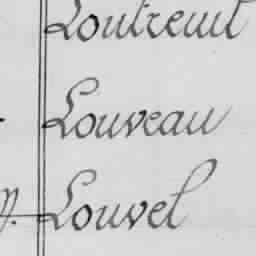 Loutreuil
Louveau
Louvel